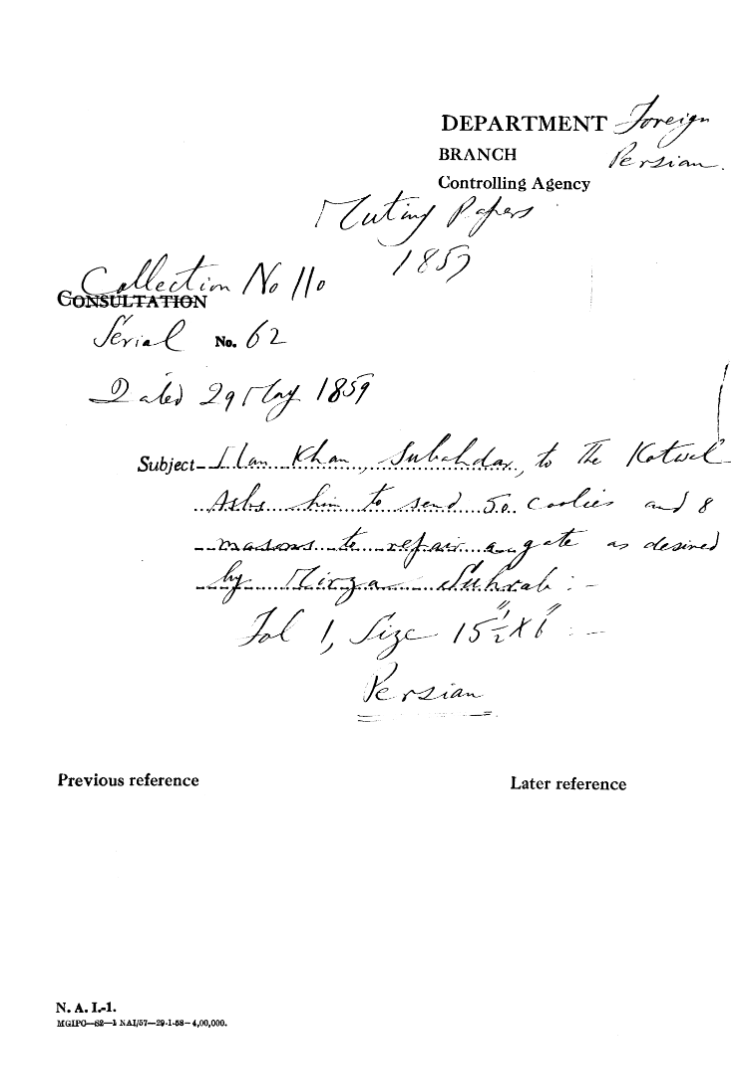 DEPARTMENT Foreign
BRANCH Persian.
Controlling Agency
Mutiny Papers
1859
Collection No 110
CONSULTATION
Serial No. 62
Dated 29 May 1859
Subject Khan, Subahdar, to the Kotwal
Asks him to send 50 coolies and 8
masons to repair a gate as desired
by Mirza Suhrab :-
Fol 1, Size 15½" X 6" :-
Persian
Previous reference
Later reference
N. A. I.-1.
MGIPC—62—1 NAI/57—29-1-58—4,00,000.